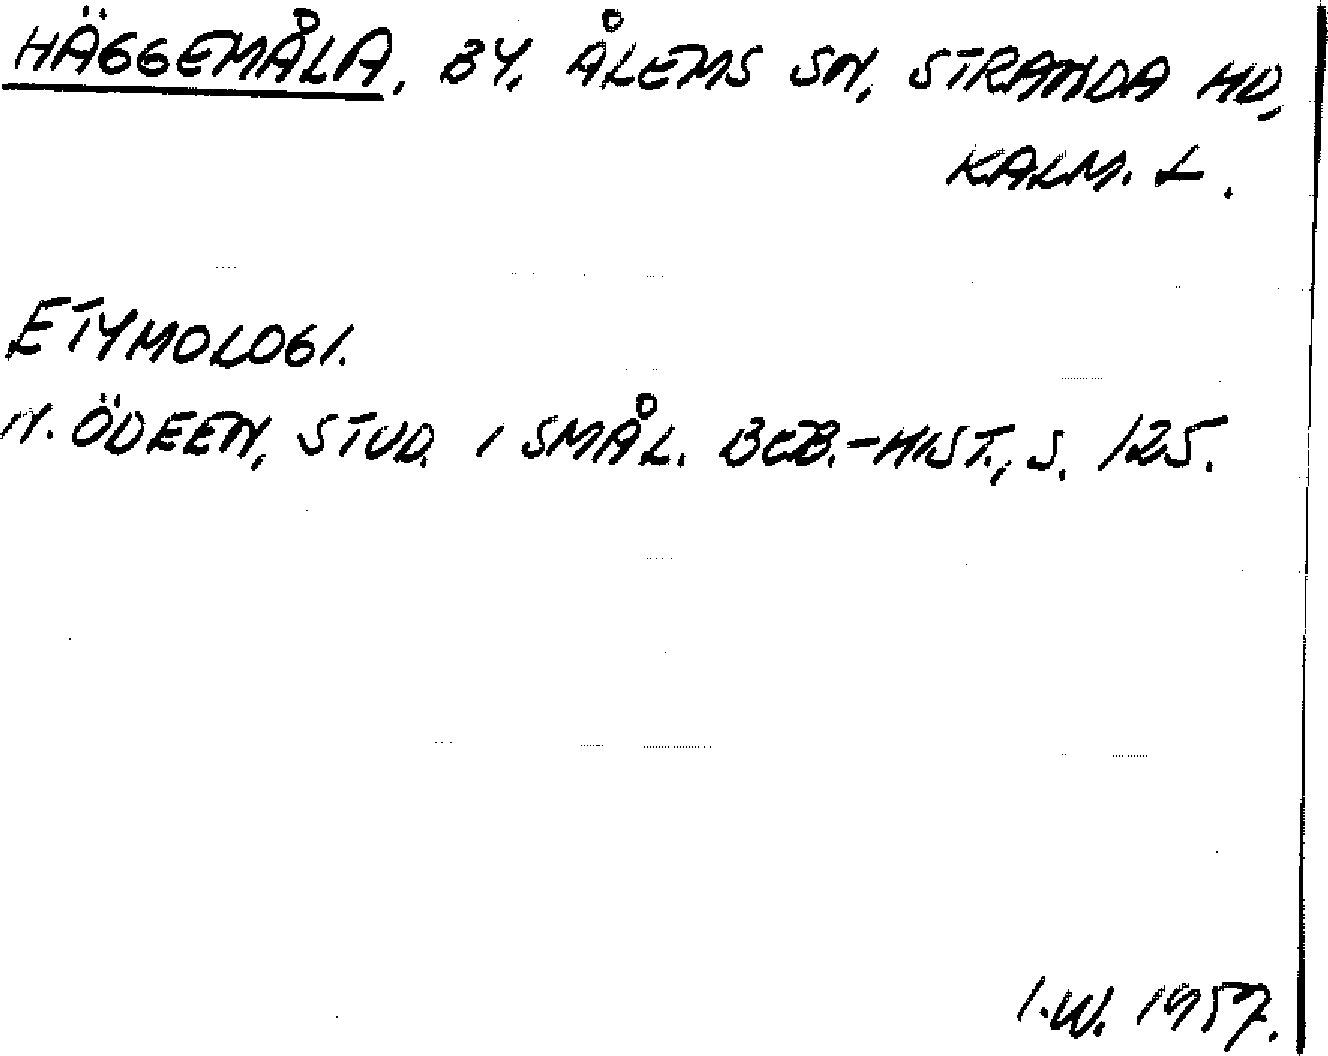 HÄGGEMÅLA, BY, ÅLEMS SN, STRANDA HD,
KALM. L.
ETYMOLOGI.
N. ÖDEEN, STUD. I SMÅL. BEB.-HIST., S. 125.
I.W. 1957.